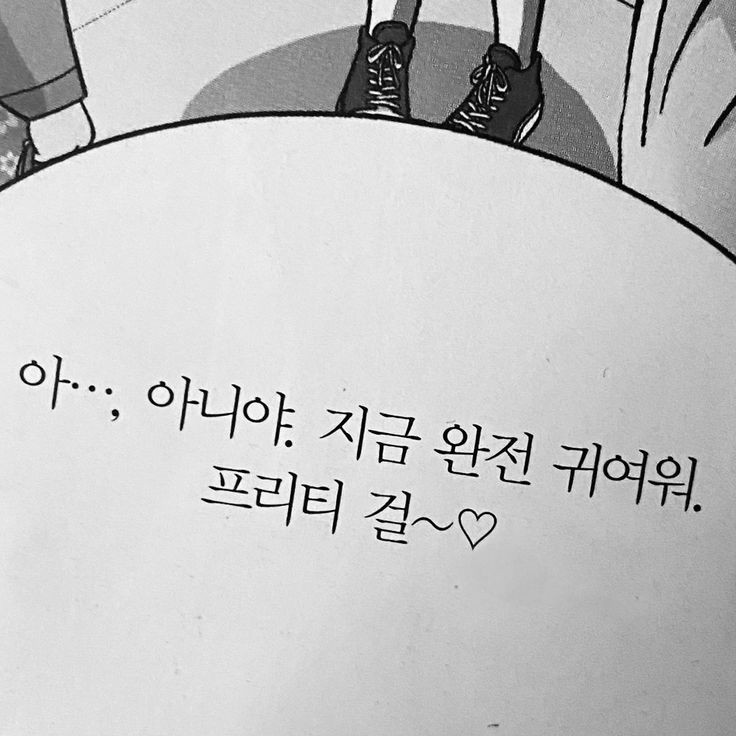 아…, 아니야. 지금 완전 귀여워.
프리티 걸~♡